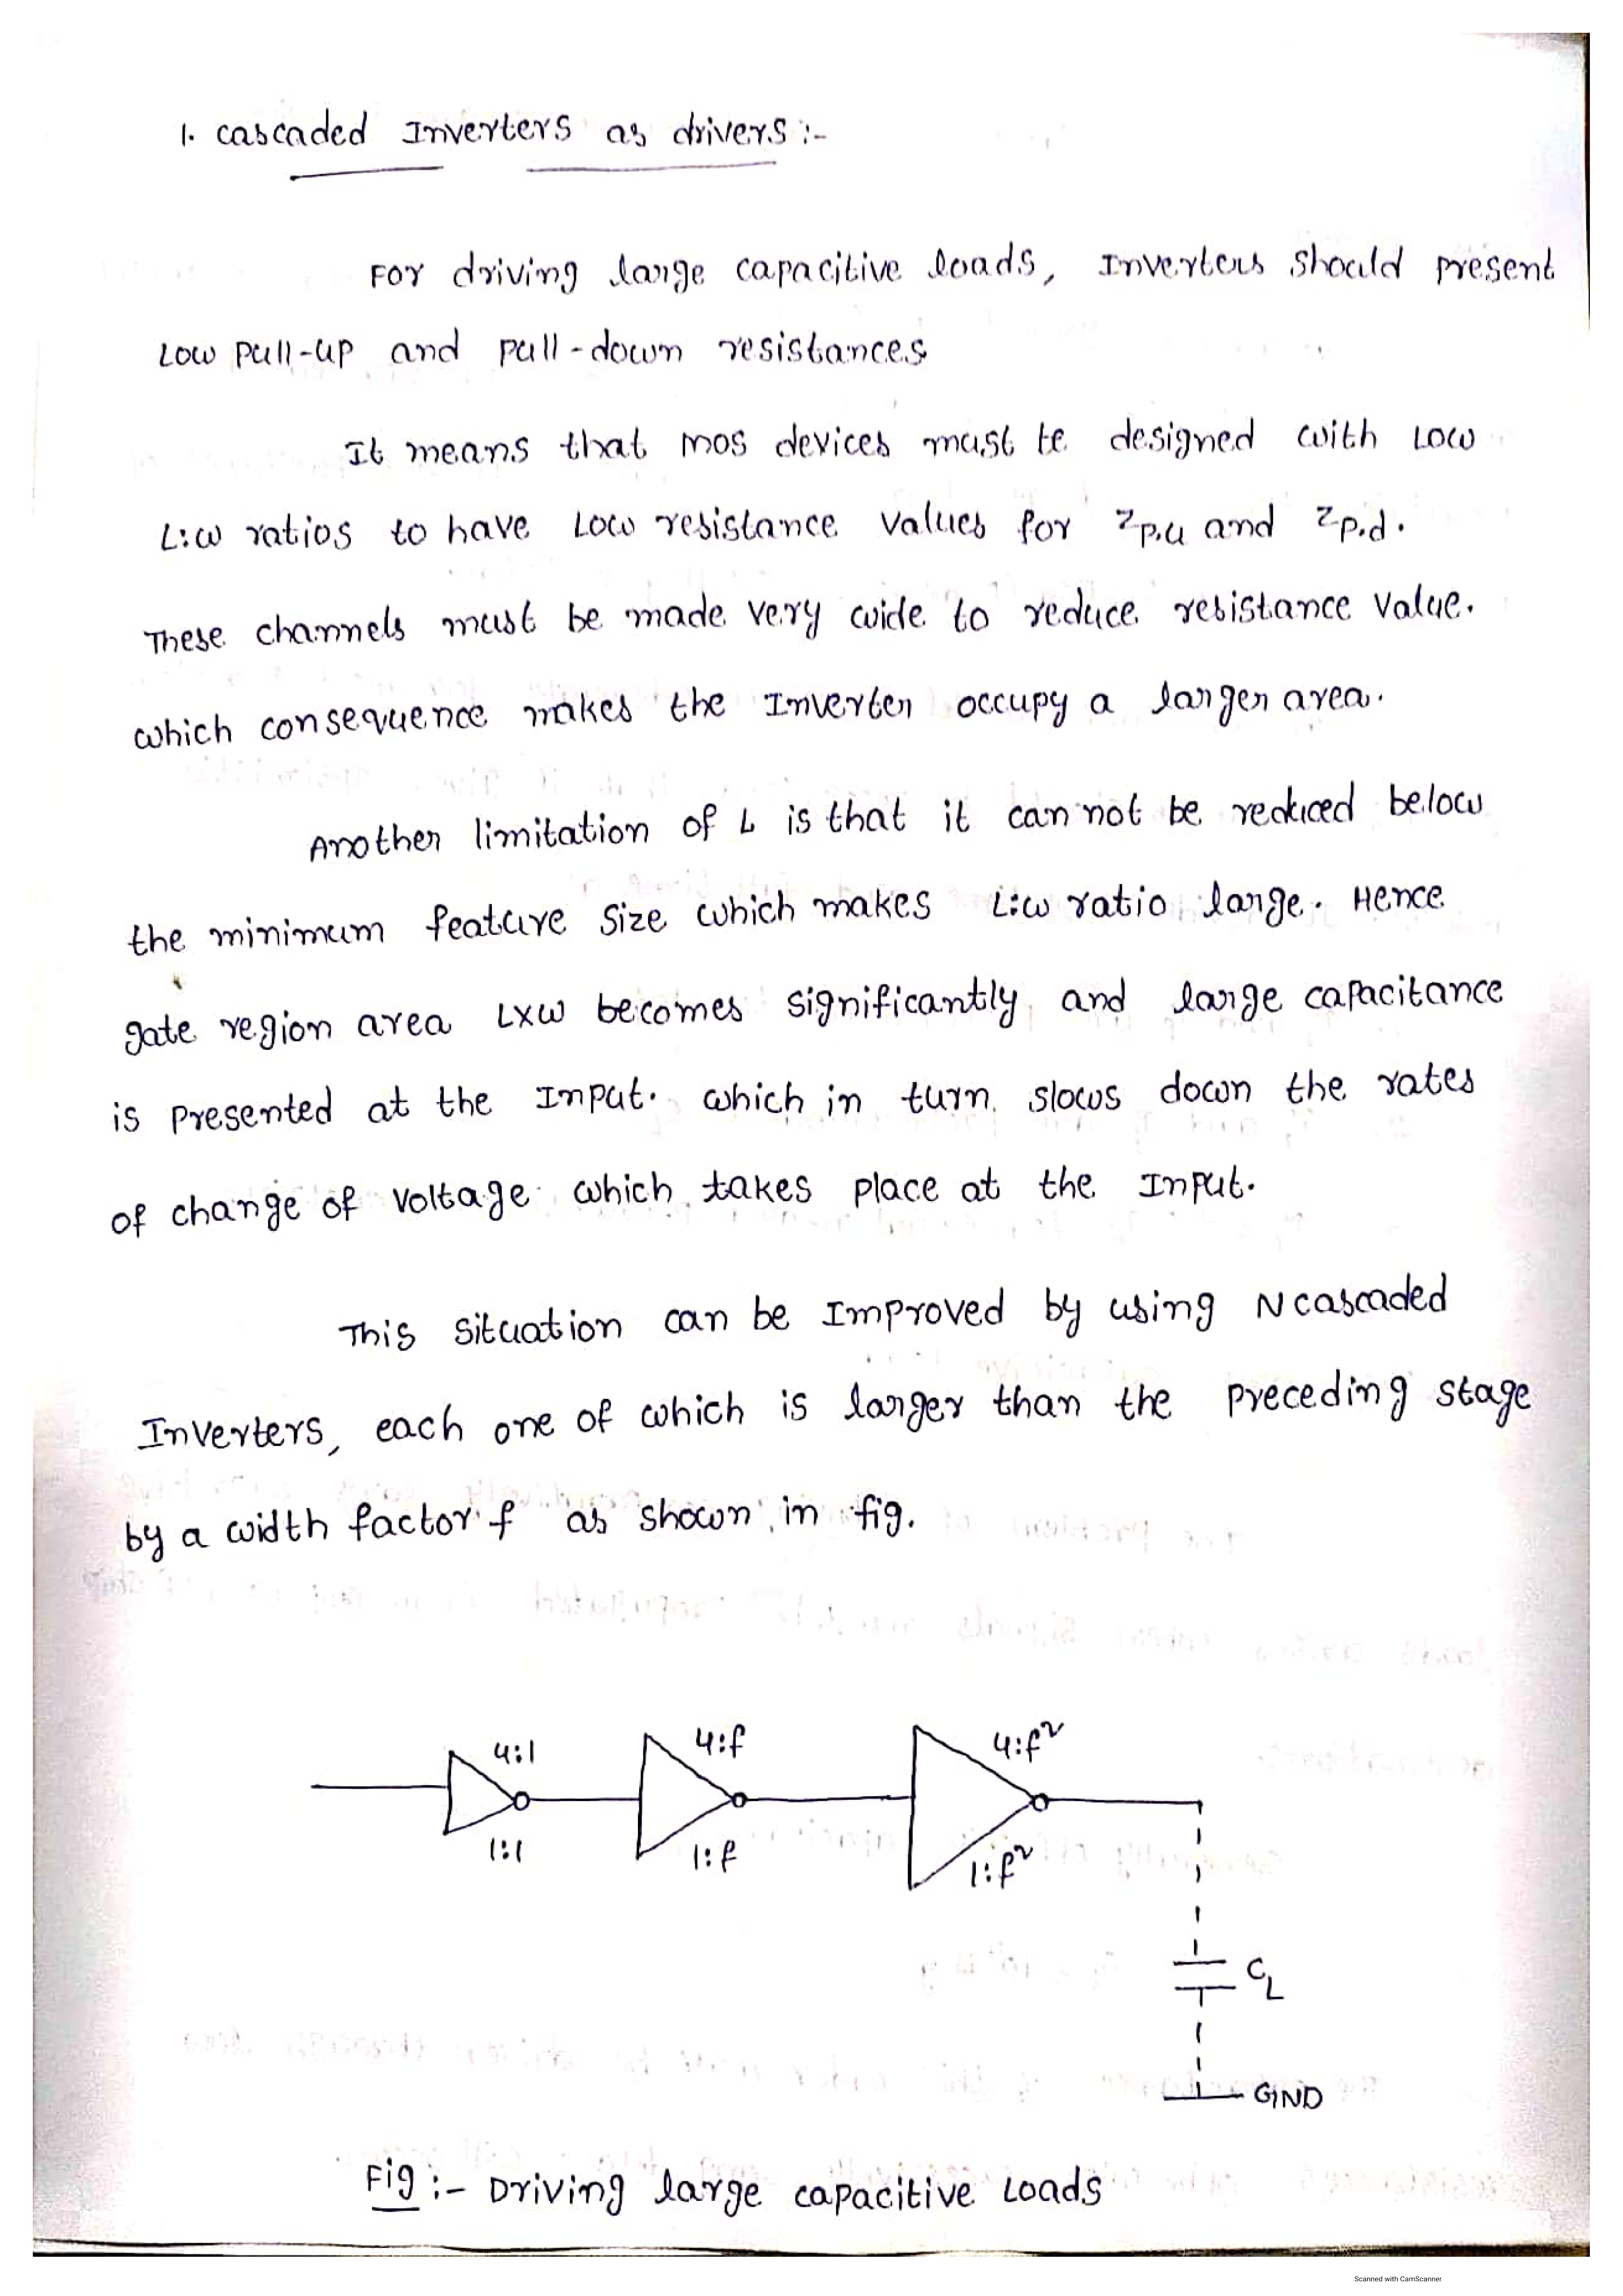 1. cascaded Inverters as drivers :-
For driving large capacitive loads, Inverters should present
Low pull-up and pull-down resistances
It means that mos devices must be designed with Low
L:W ratios to have Low resistance values for Zp.u and Zp.d.
These channels must be made very wide to reduce resistance value.
which consequence makes the Inverter occupy a larger area.
Another limitation of L is that it can not be reduced below
the minimum feature size which makes L:W ratio large. Hence
gate region area LXW becomes significantly and large capacitance
is presented at the Input. which in turn slows down the rates
of change of voltage which takes place at the Input.
This situation can be Improved by using N cascaded
Inverters, each one of which is larger than the preceding stage
by a width factor f as shown in fig.
4:1 4:f 4:f²
1:1 1:f 1:f²
CL
GND
Fig :- Driving large capacitive Loads
Scanned with CamScanner